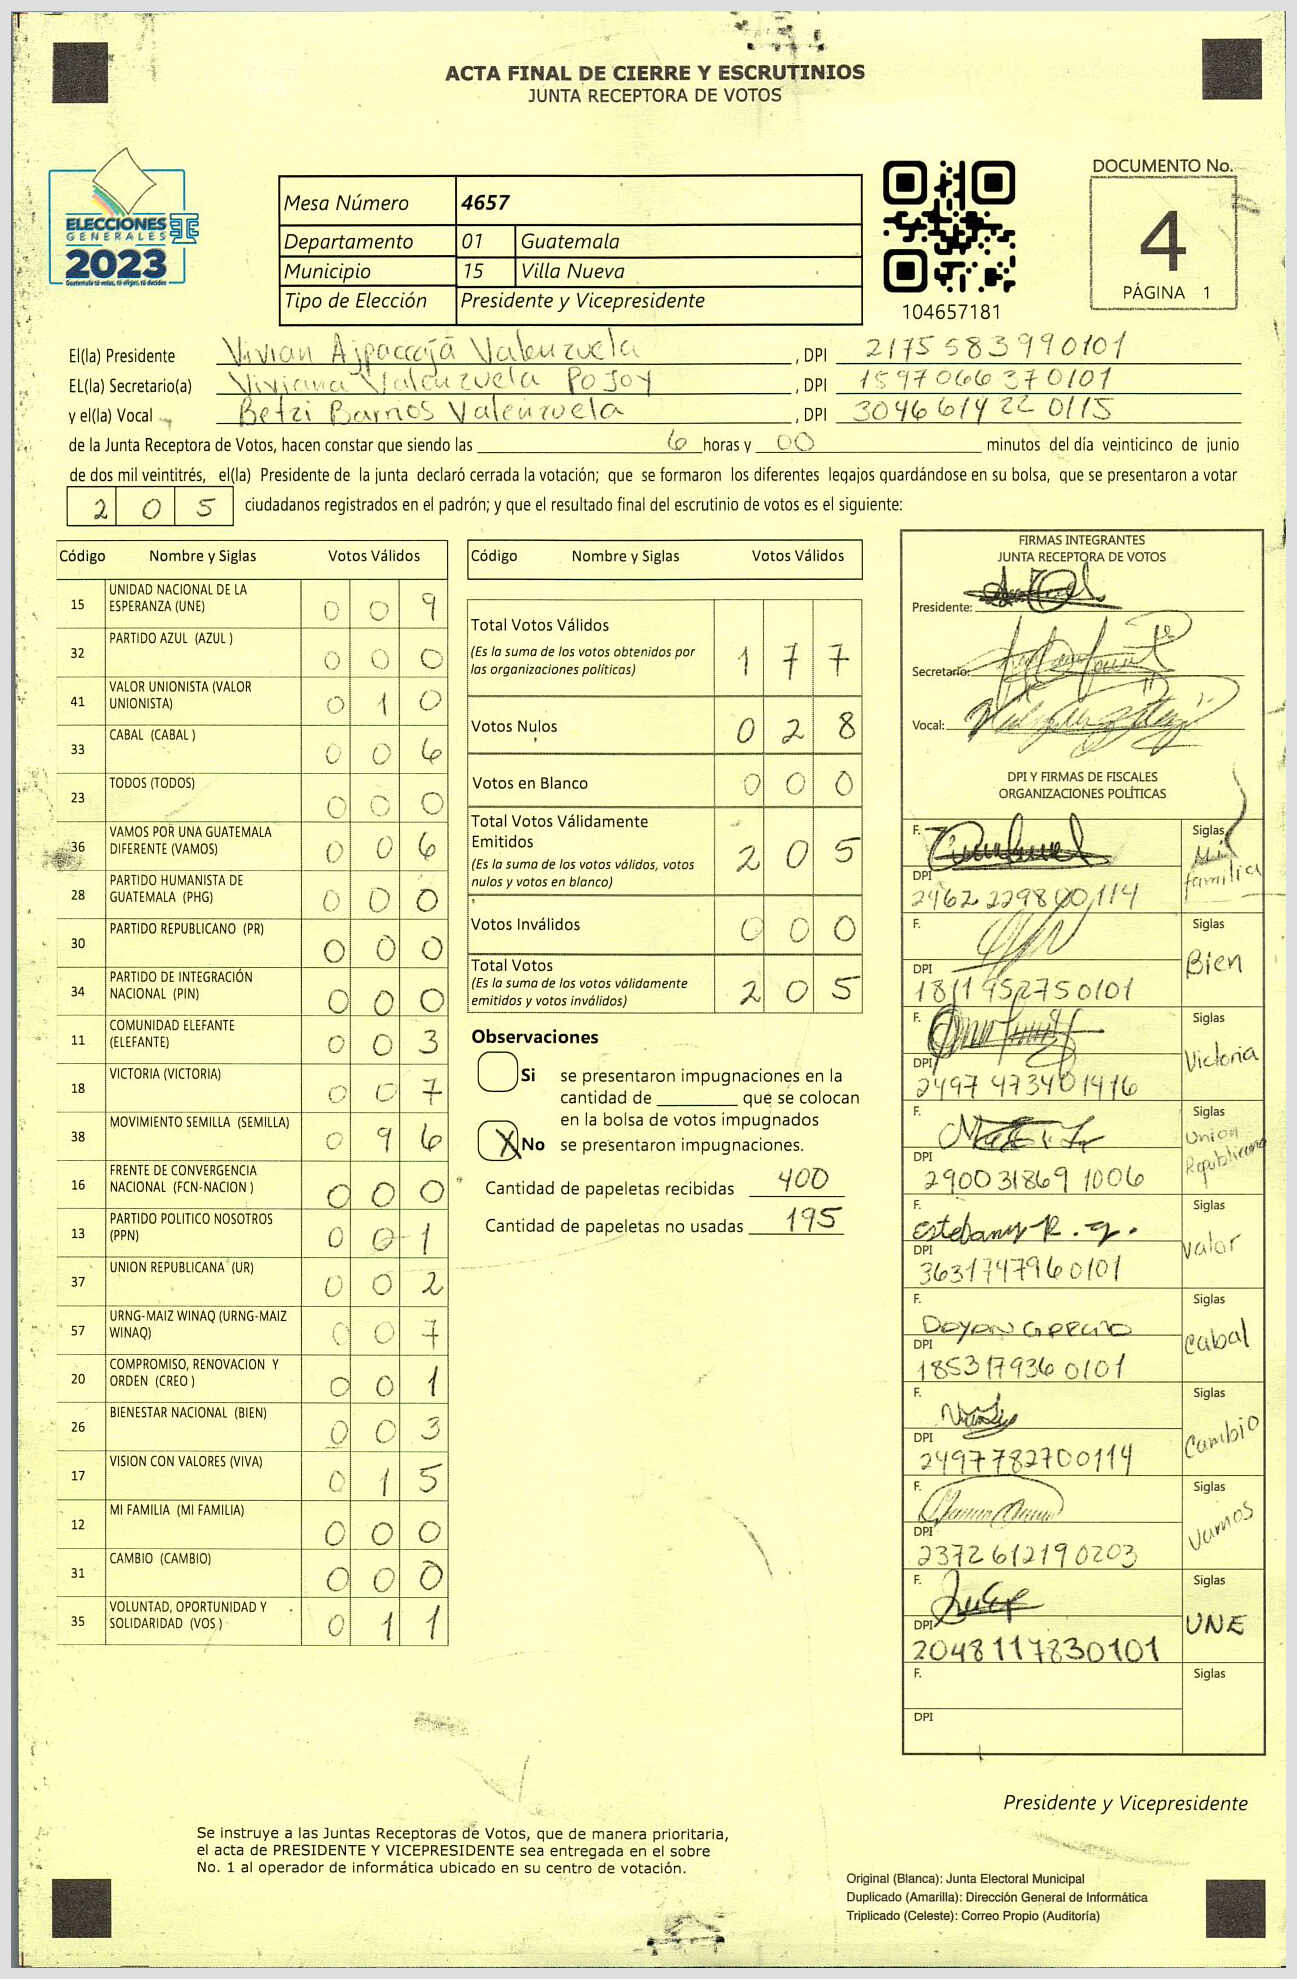 ACTA FINAL DE CIERRE Y ESCRUTINIOS
JUNTA RECEPTORA DE VOTOS
ELECCIONES
GENERALES
2023
Guatemala tú votas, tú eliges, tú decides
Mesa Número 4657
Departamento 01 Guatemala
Municipio 15 Villa Nueva
Tipo de Elección Presidente y Vicepresidente
104657181
DOCUMENTO No.
4
PÁGINA 1
El(la) Presidente Vivian Ajpacajá Valenzuela, DPI 2175583990101
EL(la) Secretario(a) Viviana Valenzuela Pojoy, DPI 1597066370101
y el(la) Vocal Betzi Barrios Valenzuela, DPI 3046614220115
de la Junta Receptora de Votos, hacen constar que siendo las 6 horas y 00 minutos del día veinticinco de junio
de dos mil veintitrés, el(la) Presidente de la junta declaró cerrada la votación; que se formaron los diferentes legajos quardándose en su bolsa, que se presentaron a votar
205 ciudadanos registrados en el padrón; y que el resultado final del escrutinio de votos es el siguiente:
Código Nombre y Siglas Votos Válidos
15 UNIDAD NACIONAL DE LA ESPERANZA (UNE) 0 0 9
32 PARTIDO AZUL (AZUL ) 0 0 0
41 VALOR UNIONISTA (VALOR UNIONISTA) 0 1 0
33 CABAL (CABAL ) 0 0 6
23 TODOS (TODOS) 0 0 0
36 VAMOS POR UNA GUATEMALA DIFERENTE (VAMOS) 0 0 6
28 PARTIDO HUMANISTA DE GUATEMALA (PHG) 0 0 0
30 PARTIDO REPUBLICANO (PR) 0 0 0
34 PARTIDO DE INTEGRACIÓN NACIONAL (PIN) 0 0 0
11 COMUNIDAD ELEFANTE (ELEFANTE) 0 0 3
18 VICTORIA (VICTORIA) 0 0 7
38 MOVIMIENTO SEMILLA (SEMILLA) 0 9 6
16 FRENTE DE CONVERGENCIA NACIONAL (FCN-NACION ) 0 0 0
13 PARTIDO POLITICO NOSOTROS (PPN) 0 0 1
37 UNION REPUBLICANA (UR) 0 0 2
57 URNG-MAIZ WINAQ (URNG-MAIZ WINAQ) 0 0 7
20 COMPROMISO, RENOVACION Y ORDEN (CREO ) 0 0 1
26 BIENESTAR NACIONAL (BIEN) 0 0 3
17 VISION CON VALORES (VIVA) 0 1 5
12 MI FAMILIA (MI FAMILIA) 0 0 0
31 CAMBIO (CAMBIO) 0 0 0
35 VOLUNTAD, OPORTUNIDAD Y SOLIDARIDAD (VOS ) 0 1 1
Código Nombre y Siglas Votos Válidos
Total Votos Válidos
(Es la suma de los votos obtenidos por
las organizaciones políticas) 1 7 7
Votos Nulos 0 2 8
Votos en Blanco 0 0 0
Total Votos Válidamente
Emitidos
(Es la suma de los votos válidos, votos
nulos y votos en blanco) 2 0 5
Votos Inválidos 0 0 0
Total Votos
(Es la suma de los votos válidamente
emitidos y votos inválidos) 2 0 5
Observaciones
Si se presentaron impugnaciones en la
cantidad de ________ que se colocan
en la bolsa de votos impugnados
X No se presentaron impugnaciones.
Cantidad de papeletas recibidas 400
Cantidad de papeletas no usadas 195
FIRMAS INTEGRANTES
JUNTA RECEPTORA DE VOTOS
Presidente:
Secretario:
Vocal:
DPI Y FIRMAS DE FISCALES
ORGANIZACIONES POLÍTICAS
F. Siglas
familia
DPI
2462 229800114
F. Siglas
Bien
DPI
1811 952750101
F. Siglas
Victoria
DPI
2497 473401416
F. Siglas
Union
Republicana
DPI
290031869 1006
F. Siglas
Estebany R. g. valor
DPI
3631747960101
F. Siglas
Dayan Garcia Cabal
DPI
1853179360101
F. Siglas
Cambio
DPI
2497782700114
F. Siglas
Vamos
DPI
2372612190203
F. Siglas
UNE
DPI
2048117830101
F. Siglas
DPI
Presidente y Vicepresidente
Se instruye a las Juntas Receptoras de Votos, que de manera prioritaria,
el acta de PRESIDENTE Y VICEPRESIDENTE sea entregada en el sobre
No. 1 al operador de informática ubicado en su centro de votación.
Original (Blanca): Junta Electoral Municipal
Duplicado (Amarilla): Dirección General de Informática
Triplicado (Celeste): Correo Propio (Auditoría)